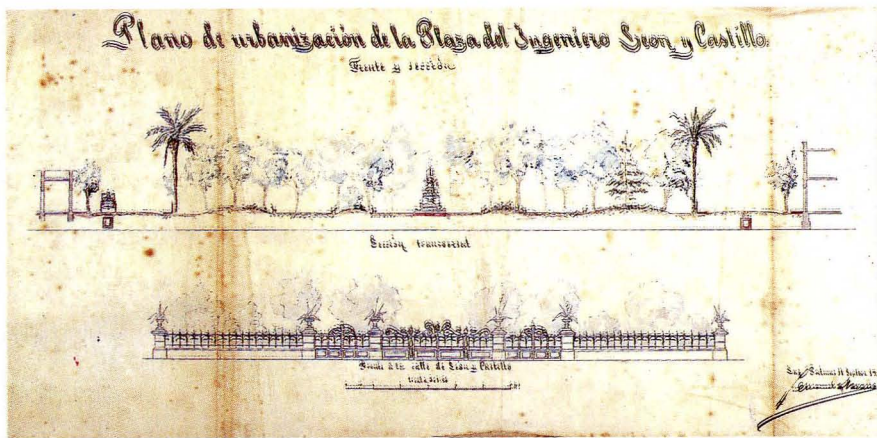 Plano de urbanización de la Plaza del Ingeniero Leon y Castillo
Frente y sección
Sección transversal
Frente à la calle de Leon y Castillo
Las Palmas 11